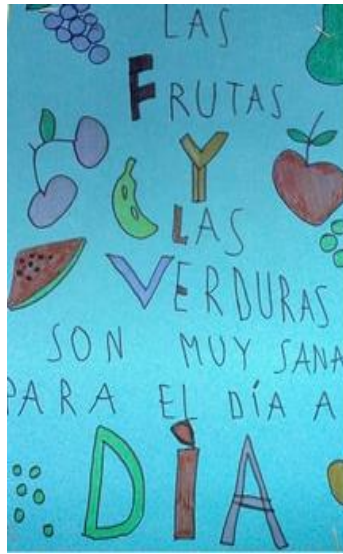 LAS
FRUTAS
Y
LAS
VERDURAS
SON MUY SANA
PARA EL DÍA A
DÍA